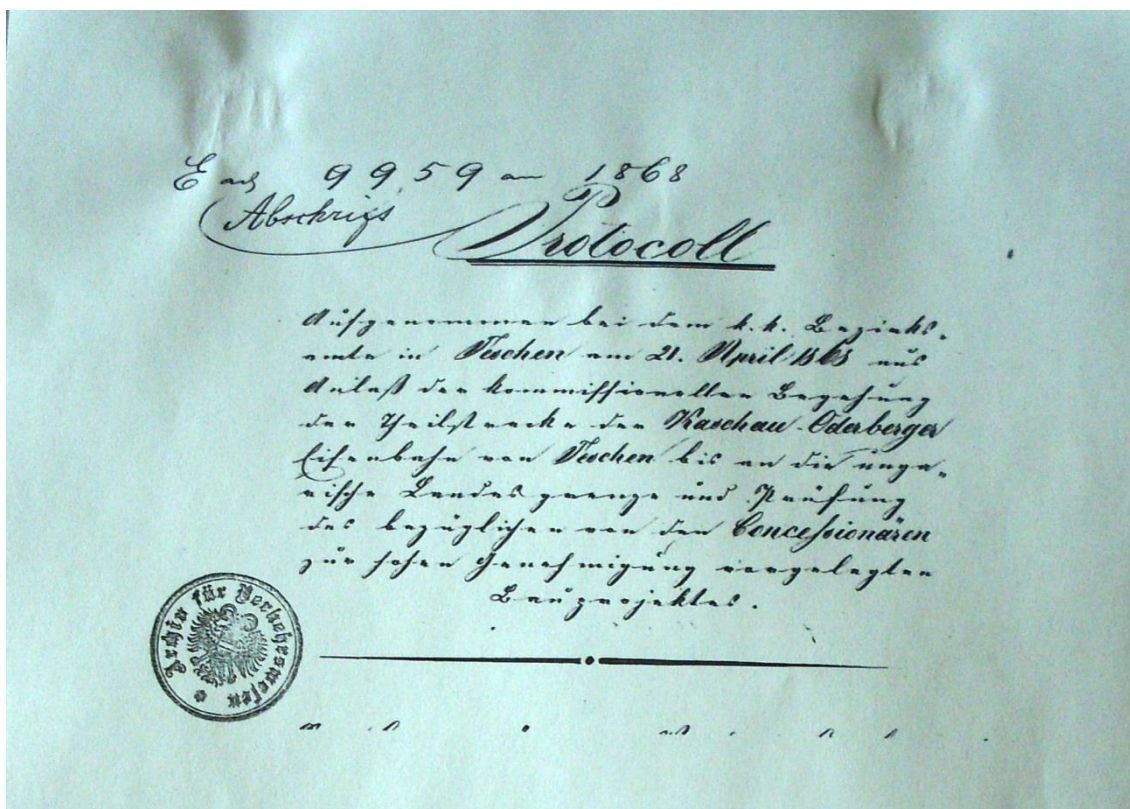 E ad 9959 am 1868
Abschrift
Protocoll
Aufgenommen bei dem k.k. Bezirks-
amte in Teschen am 21. April 1868 aus
Anlaß der kommissionellen Begehung
der Theilstrecke der Kaschau-Oderberger
Eisenbahn von Teschen bis an die unga-
rische Landesgrenze und Prüfung
des bezüglichen von den Concessionären
zur hohen Genehmigung vorgelegten
Bauprojektes.
Archiv für Verkehrswesen